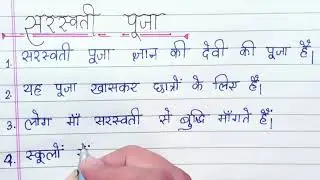 सरस्वती पूजा
1. सरस्वती पूजा ज्ञान की देवी की पूजा है।
2. यह पूजा खासकर छात्रों के लिए है।
3. लोग माँ सरस्वती से बुद्धि माँगते हैं।
4. स्कूलों